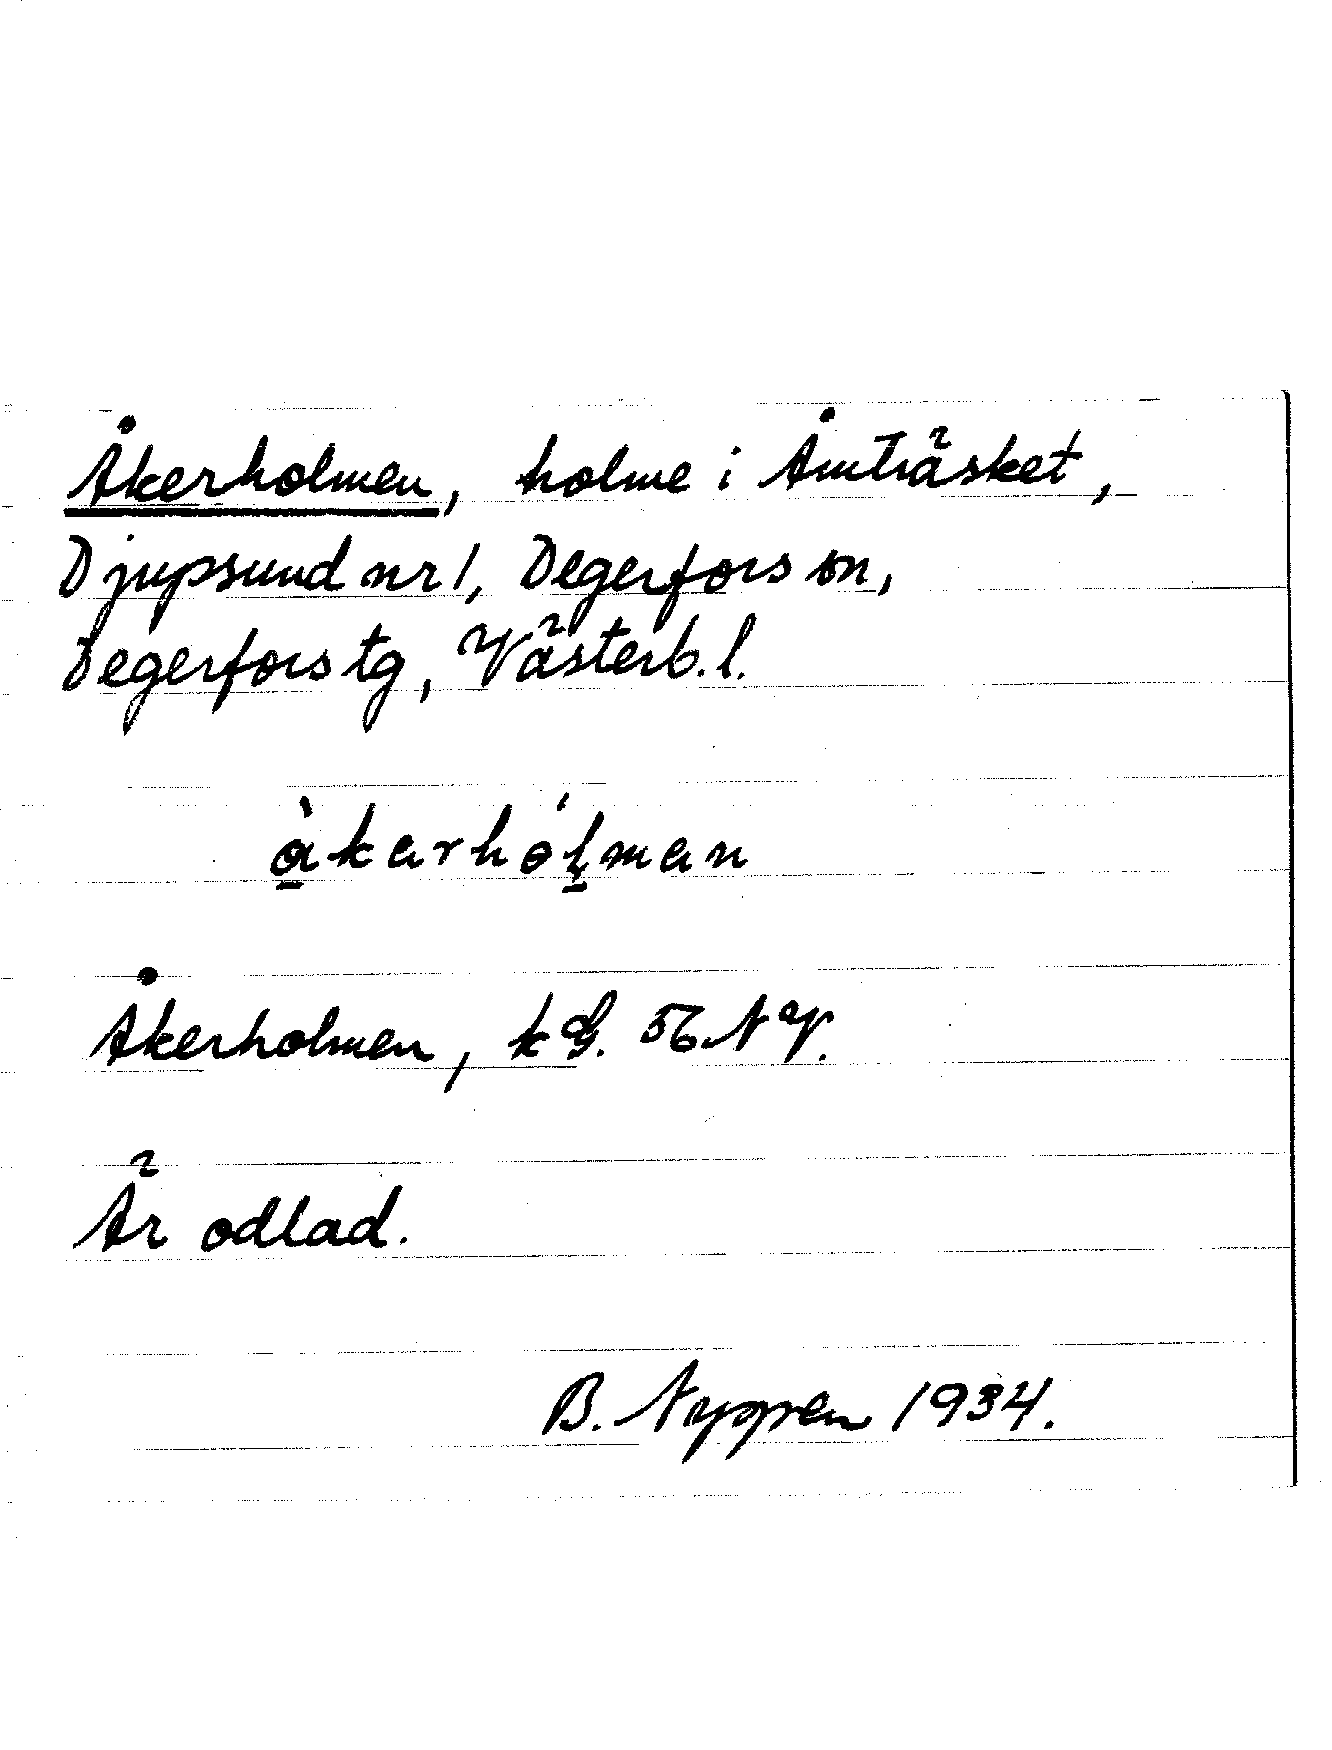 Åkerholmen, holme i Åmträsket,
Djupsund nr 1, Degerfors sn,
Degerfors tg, Västerb. l.
å̀karhó̱ḻman
Åkerholmen, kG. 56 NV.
Är odlad.
B. Nyppen 1934.